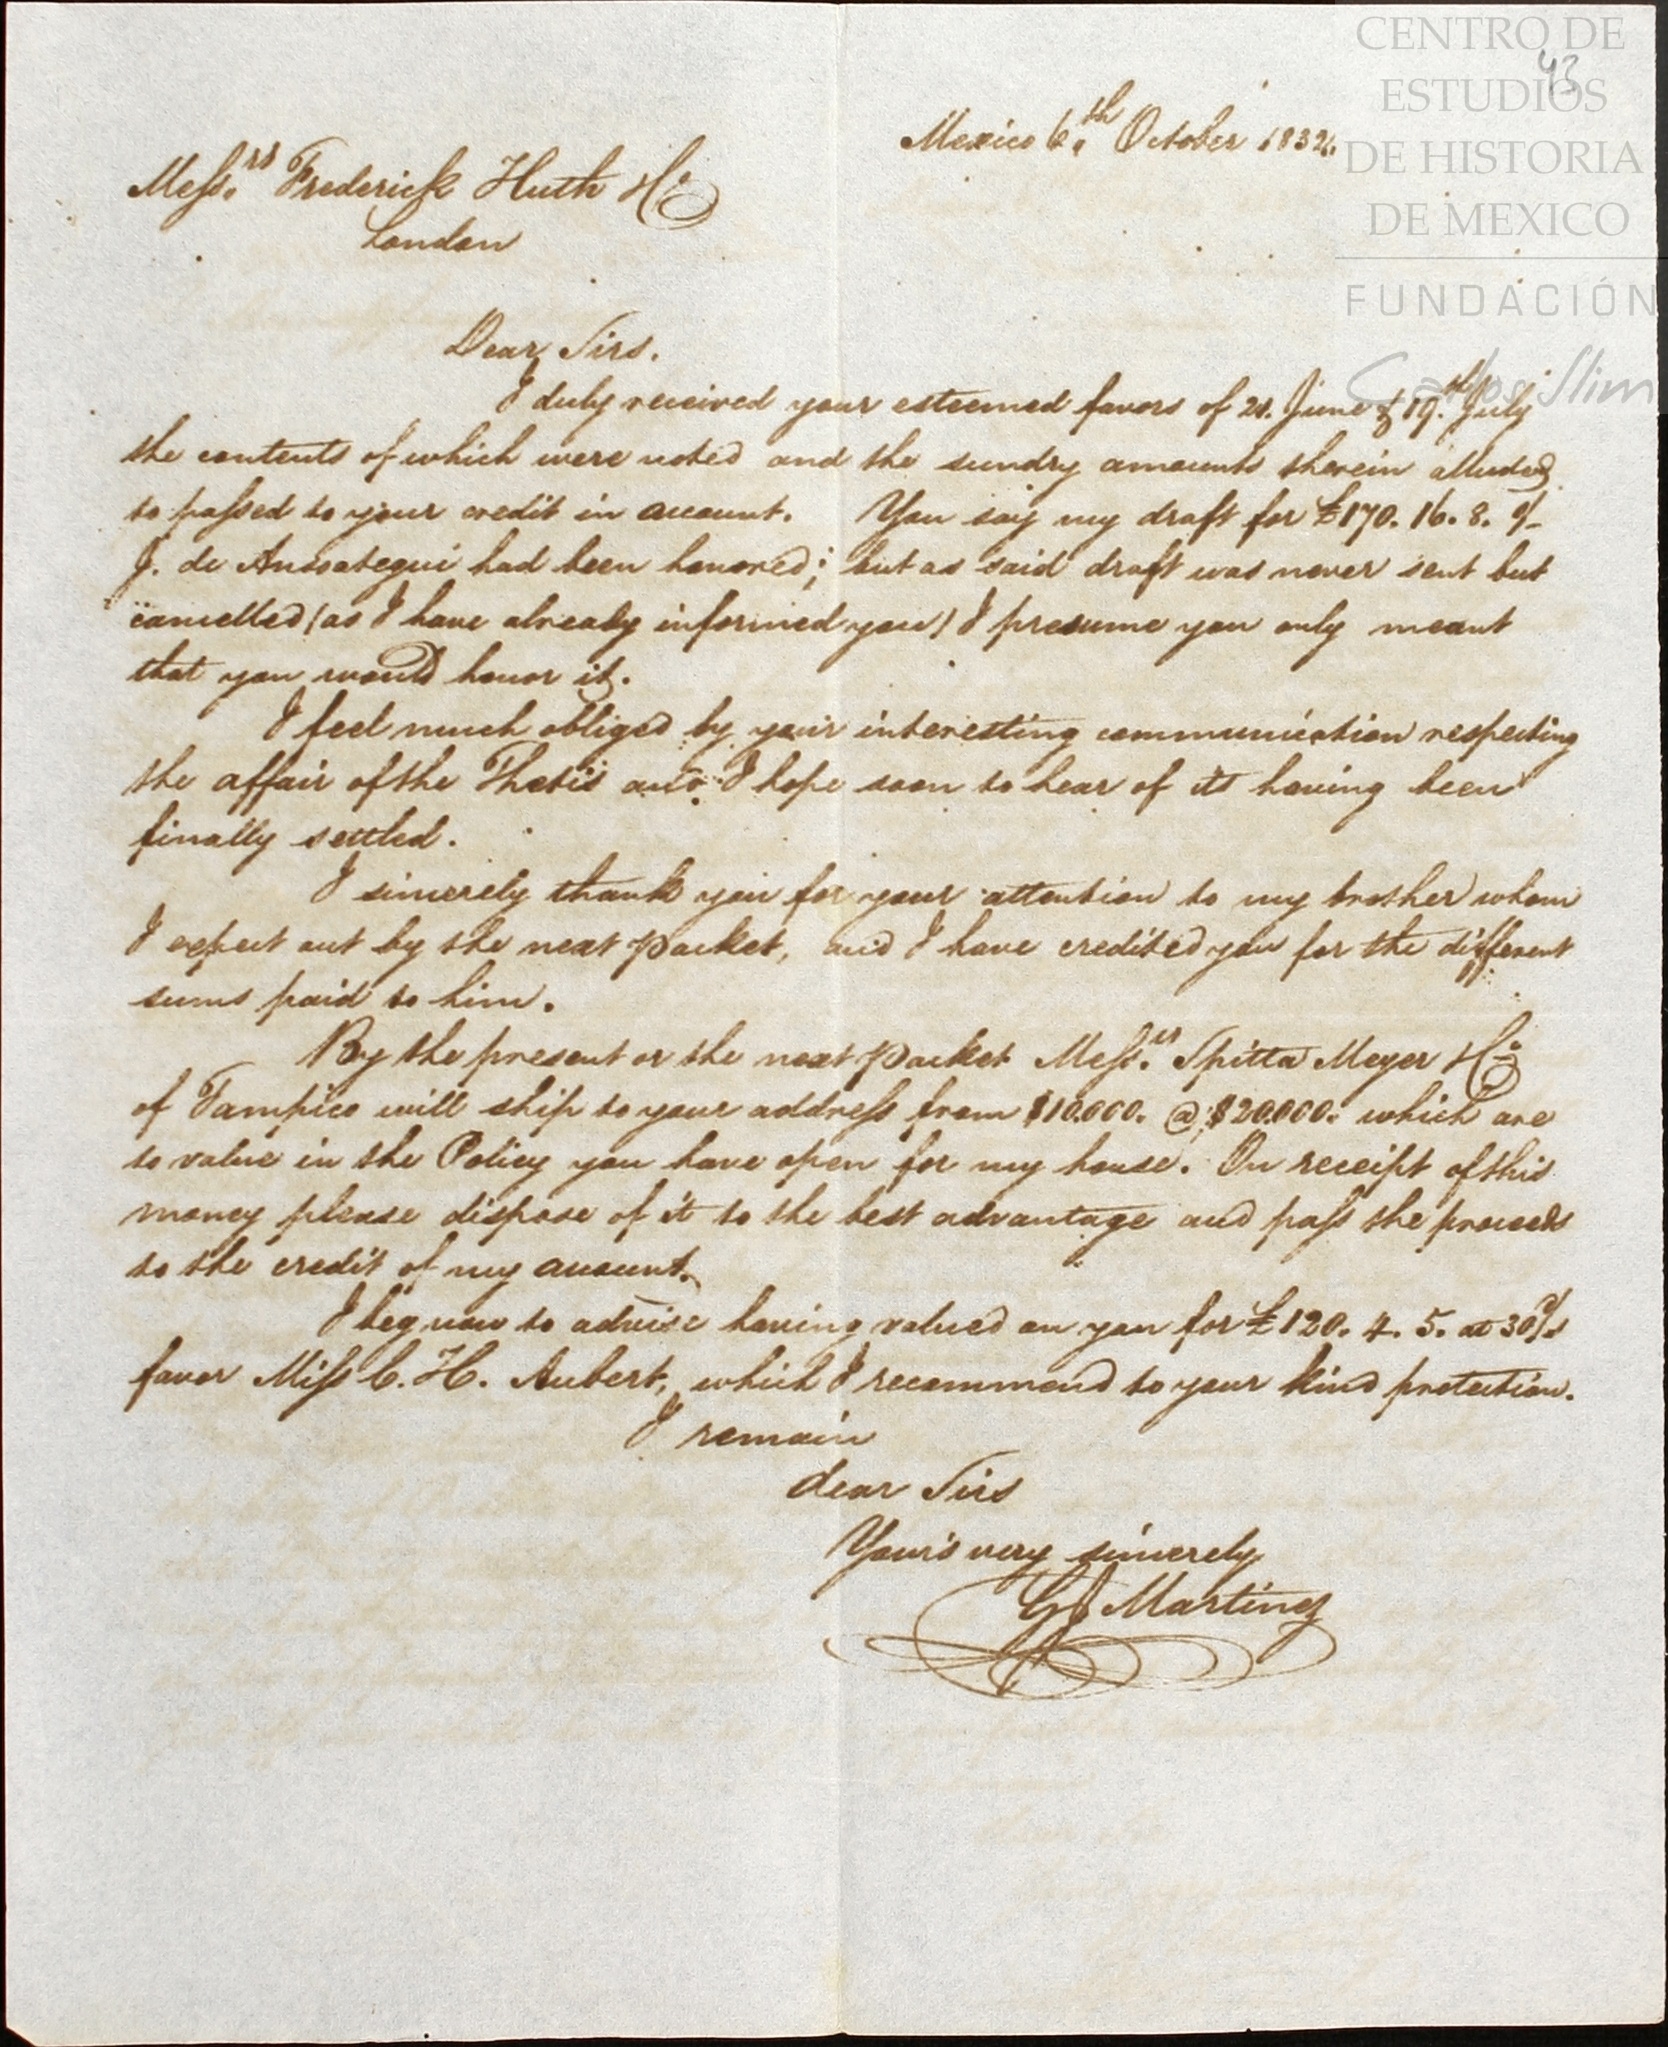 CENTRO DE
ESTUDIOS
DE HISTORIA
DE MEXICO
FUNDACIÓN
Carlos Slim
43
Mexico 6.th October 1832.
Messrs. Frederick Huth & Co
London
Dear Sirs.
I duly received your esteemed favors of 21. June & 19.th July
the contents of which were noted and the sundry amounts therein alluded
to passed to your credit in account. You say my draft for £170. 16. 8. o/
J. de Ansoategui had been honored; but as said draft was never sent but
cancelled (as I have already informed you) I presume you only meant
that you would honor it.
I feel much obliged by your interesting communication respecting
the affair of the Thetis and I hope soon to hear of its having been
finally settled.
I sincerely thank you for your attention to my brother whom
I expect out by the next packet, and I have credited you for the different
sums paid to him.
By the present or the next packet Messrs. Spitta Meyer & Co
of Tampico will ship to your address from $10.000. @ $20.000. which are
to value in the Policy you have open for my house. On receipt of this
money please dispose of it to the best advantage and pass the proceeds
to the credit of my account.
I beg now to advise having valued on you for £120. 4. 5. at 30 d/s
favor Miss C. H. Aubert, which I recommend to your kind protection.
I remain
dear Sirs
Your's very sincerely
G J Martinez